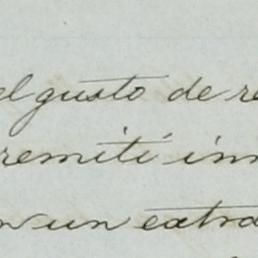 el gusto de re
remití inm
n un extra